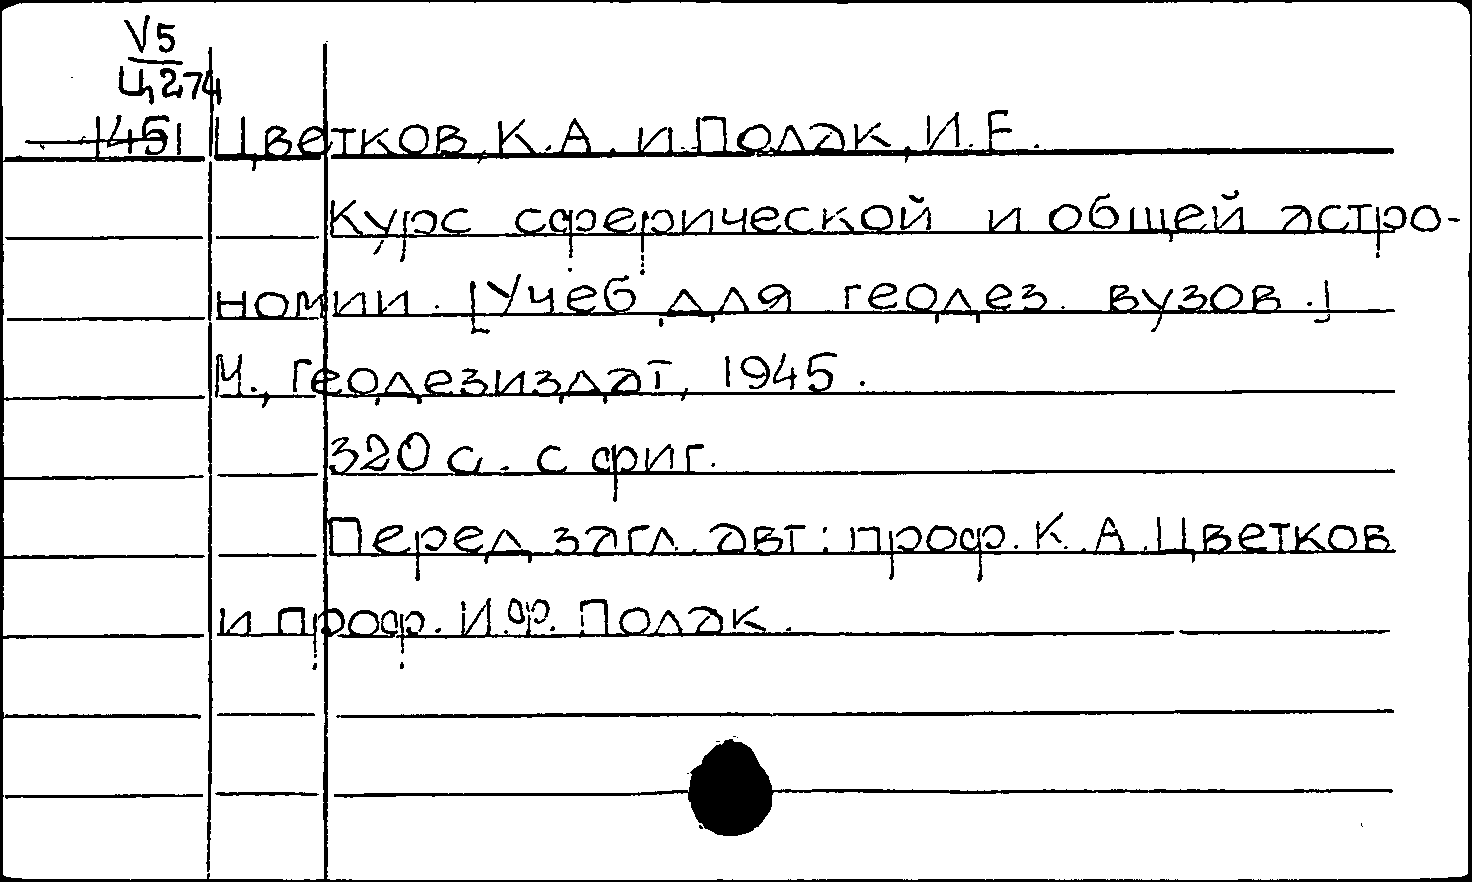 V5
Ц274
1451 Цветков, К.А. и Полак, И.Е.
Курс сферической и общей астро-
номии. [Учеб для геодез. вузов.]
М., Геодезиздат, 1945.
320 с. с фиг.
Перед загл. авт: проф. К.А. Цветков
и проф. И.Ф. Полак.